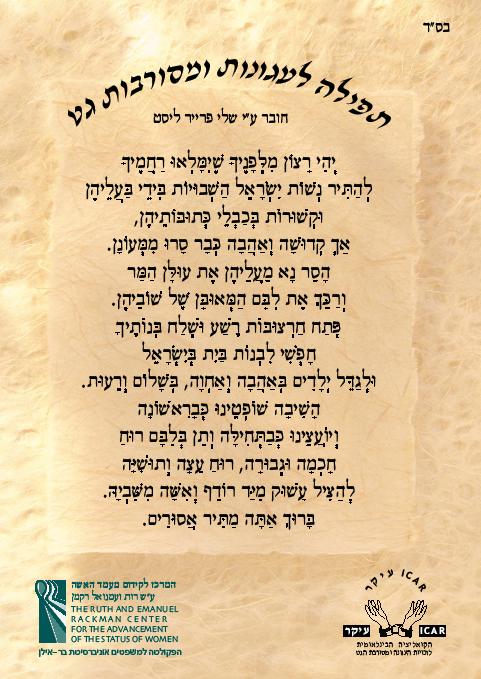 בס"ד
תפילה לעגונות ומסורבות גט
חובר ע"י שלי פרייר ליסט
יְהִי רָצוֹן מִלְּפָנֶיךָ שֶׁיִּמָּלְאוּ רַחֲמֶיךָ
לְהַתִּיר נְשׁוֹת יִשְׂרָאֵל הַשְּׁבוּיוֹת בִּידֵי בַּעֲלֵיהֶן
וּקְשׁוּרוֹת בְּכַבְלֵי כְּתוּבּוֹתֵיהֶן,
אַךְ קְדוּשָׁה וְאַהֲבָה כְּבָר סָרוּ מִמְּעוֹנָן.
הָסֵר נָא מֵעֲלֵיהֶן אֶת עוּלָּן הַמַּר
וְרַכֵּךְ אֶת לִבָּם הַמְּאוּבָּן שֶׁל שׁוֹבֵיהֶן.
פְּתַח חַרְצוּבּוֹת רֶשַׁע וּשְׁלַח בְּנוֹתֶיךָ
חָפְשִׁי לִבְנוֹת בַּיִת בְּיִשְׂרָאֵל
וּלְגַדֵּל יְלָדִים בְּאַהֲבָה וְאַחְוָה, בְּשָׁלוֹם וְרֵעוּת.
הָשִׁיבָה שׁוֹפְטֵינוּ כְּבָרִאשׁוֹנָה
וְיוֹעֲצֵינוּ כְּבַתְּחִילָּה וְתֵן בְּלִבָּם רוּחַ
חָכְמָה וּגְבוּרָה, רוּחַ עֵצָה וְתוּשִׁיָּה
לְהַצִּיל עָשׁוּק מִיַּד רוֹדֵף וְאִשָּׁה מִשִּׁבְיָהּ.
בָּרוּךְ אַתָּה מַתִּיר אֲסוּרִים.
המרכז לקידום מעמד האשה
ע"ש רות ועמנואל רקמן
THE RUTH AND EMANUEL
RACKMAN CENTER
FOR THE ADVANCEMENT
OF THE STATUS OF WOMEN
הפקולטה למשפטים אוניברסיטת בר-אילן
עיקר ICAR
עיקר ICAR
הקואליציה הבינלאומית
לזכויות העגונה ומסורבת הגט